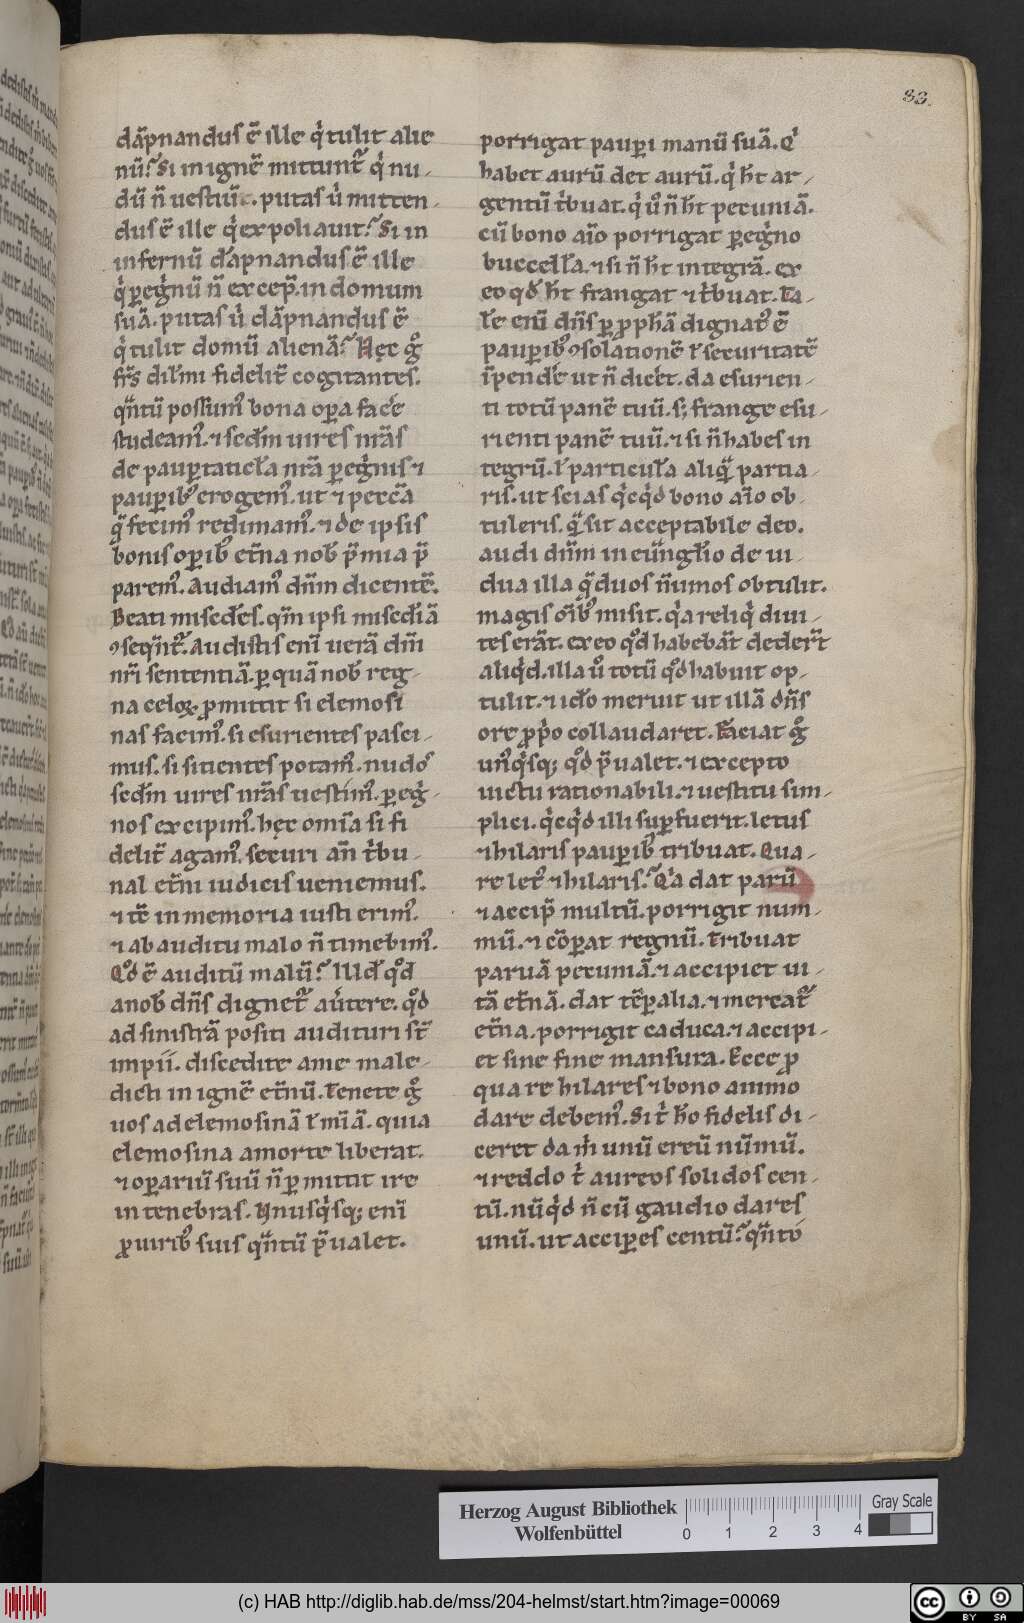 83.
dāpnandus ē ille q̇ tulit alie
nū? Si in ignē mittunt᷑ q̇ nu-
dū n̄ uestiuīt. putas u̇ mitten-
dus ē ille q̇ expoliauit? Si in
infernū dāpnandus ē ille
q̇ ꝑeġnū n̄ excep̄. in domum
suā. putas u̇ dāpnandus ē
q̇ tulit domū alienā? Hęc g̊
fr̄s dil̄mi fidelit᷑ cogitantes.
qn̄tū possum᷒ bona oꝑa face̅
studeam᷒. ⁊ sc̄dm uires nr̄as
de pauꝑtaticl̄a nr̄a ꝑeġnis ⁊
pauꝑib᷒ erogem᷒. ut ⁊ pecc̄a
q̄ fecim᷒ redimam᷒. ⁊ de ipsis
bonis oꝑib᷒ et̄na nob̄ p̄mia p̄
parem᷒. Audiam᷒ dn̄m dicentē.
Beati misc̄des. qm̄ ipsi misc̄diā
ꝯseqn̄t᷑. Audistis enī uerā dn̄i
nr̄i sententiā. ꝑ quā nob̄ reg-
na celoꝝ ꝓmittit si elemosi
nas facim᷒. si esurientes pasci-
mus. si sitientes potam᷒. nudos
sc̄dm uires nr̄as uestim᷒. ꝑeġ-
nos excipim᷒. hęc omīa si fi
delit᷑ agam᷒. securi an̄ t̍bu-
nal et̄ni iudicis ueniemus.
⁊ tē in memoria iusti erim᷒.
⁊ ab auditu malo n̄ timebim᷒.
Qd̊ ē auditū malū? Illd̄ qd̊
a nob̄ dn̄s dignet᷑ au̇tere. qd̊
ad sinistrā positi audituri st̄
impii. discedite a me male-
dicti in ignē et̄nū. Tenete g̊
uos ad elemosinā ł mīā. quia
elemosina a morte liberat.
⁊ oꝑariū suū n̄ ꝑmittit ire
in tenebras. Vnusq̇sq; enī
ꝓ uirib᷒ suis qn̄tū p̄ualet.
porrigat pauꝑi manū suā. Q̇
habet aurū det aurū. q̇ h̄t ar-
gentū t̍buat. q̇ ů n̄ h̄t pecuniā.
cū bono aīo porrigat ꝑeġno
buccell̄a. ⁊ si n̄ h̄t integrā. ex
eo qd̄ h̄t frangat ⁊ t̍buat. Ta-
l̄e enī dn̄s ꝑ ꝓph̄ā dignat᷒ ē
pauꝑib᷒ ꝯsolationē ł securitatē
īpende̅ ut n̄ dicer̄t. da esurien-
ti totū panē tuū. s; frange esu-
rienti panē tuū. ⁊ si n̄ habes in
tegrū. ł particul̄a aliq̄ partia-
ris. ut scias q̇cq̇d bono aīo ob-
tuleris. q̄ sit acceptabile deo.
audi dn̄m in euāngl̄io de ui-
dua illa q̄ duos nūmos obtulit.
magis oīb᷒ misit. q̇a reliq̇ diui
tes erāt. ex eo qd̊ habebāt deder̄t
aliq̇d. illa ů totū qd̊ habuit op-
tulit. ⁊ ido̅ meruit ut illā dn̄s
ore ꝓp̍o collaudaret. Faciat g̊
un᷒q̇sq; qd̊ p̄ualet. ⁊ excepto
uictu rationabili. ⁊ uestitu sim-
plici. q̇cq̇d illi suꝑfuerit. letus
⁊ hilaris pauꝑib᷒ tribuat. Qua-
re let᷒ ⁊ hilaris? Q̇a dat parū
⁊ accip̄ multū. porrigit num-
mū. ⁊ cōꝑat regnū. tribuat
paruā pecuniā. ⁊ accipiet ui-
tā et̄nā. dat tēꝑalia. ⁊ mercat᷑
et̄na. porrigit caduca. ⁊ accipi-
et sine fine mansura. Ecce ꝓ
qua re hilares ⁊ bono animo
dare debem᷒. Si t̍ ho̅ fidelis di-
ceret da m̍ unū ereū nūmū.
⁊ reddo t̍ aureos solidos cen-
tū. nūq̇d n̄ cū gaudio dares
unū. ut acciꝑes centū? qn̄to
Herzog August Bibliothek
Wolfenbüttel
0 1 2 3 4
Gray Scale
(c) HAB http://diglib.hab.de/mss/204-helmst/start.htm?image=00069
cc BY SA